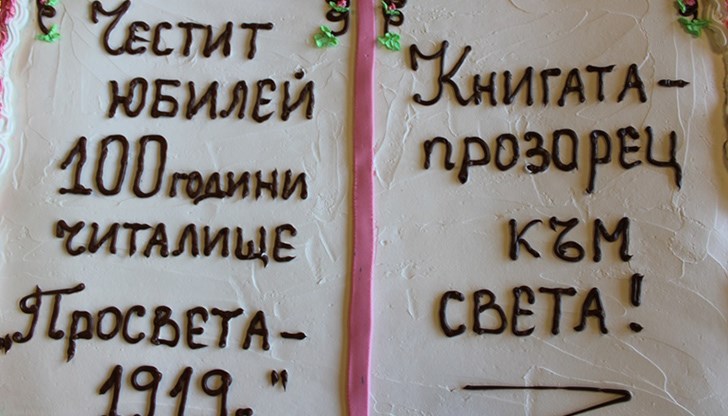 Честит
юбилей
100 години
читалище
„Просвета –
1919."
Книгата –
прозорец
към
света!